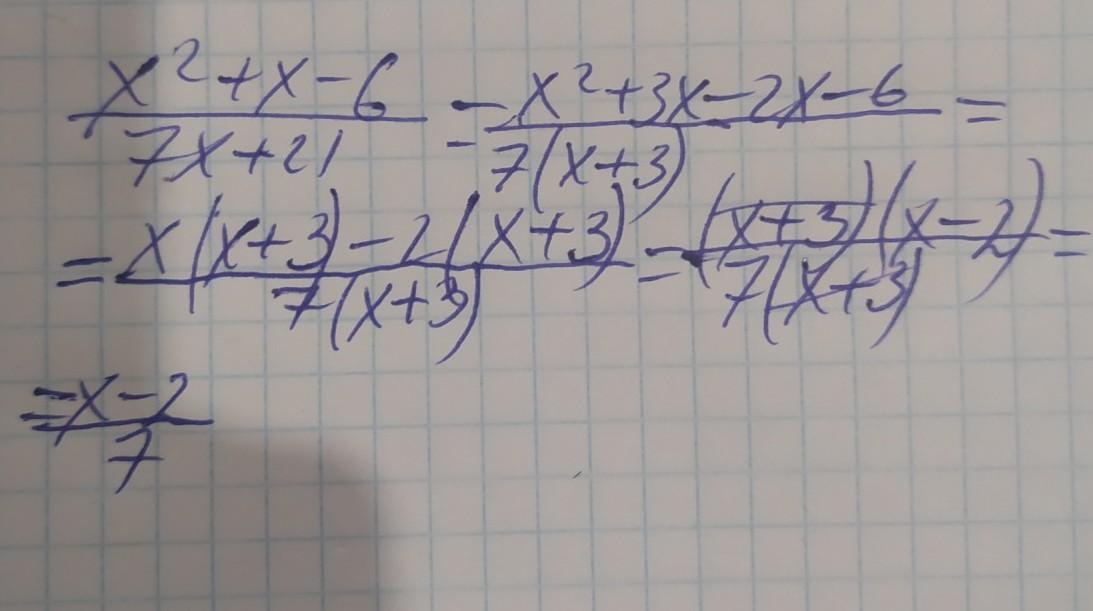 (x²+x-6)/(7x+21) = (x²+3x-2x-6)/(7(x+3)) =
= (x(x+3)-2(x+3))/(7(x+3)) = ((x+3)(x-2))/(7(x+3)) =
= (x-2)/7